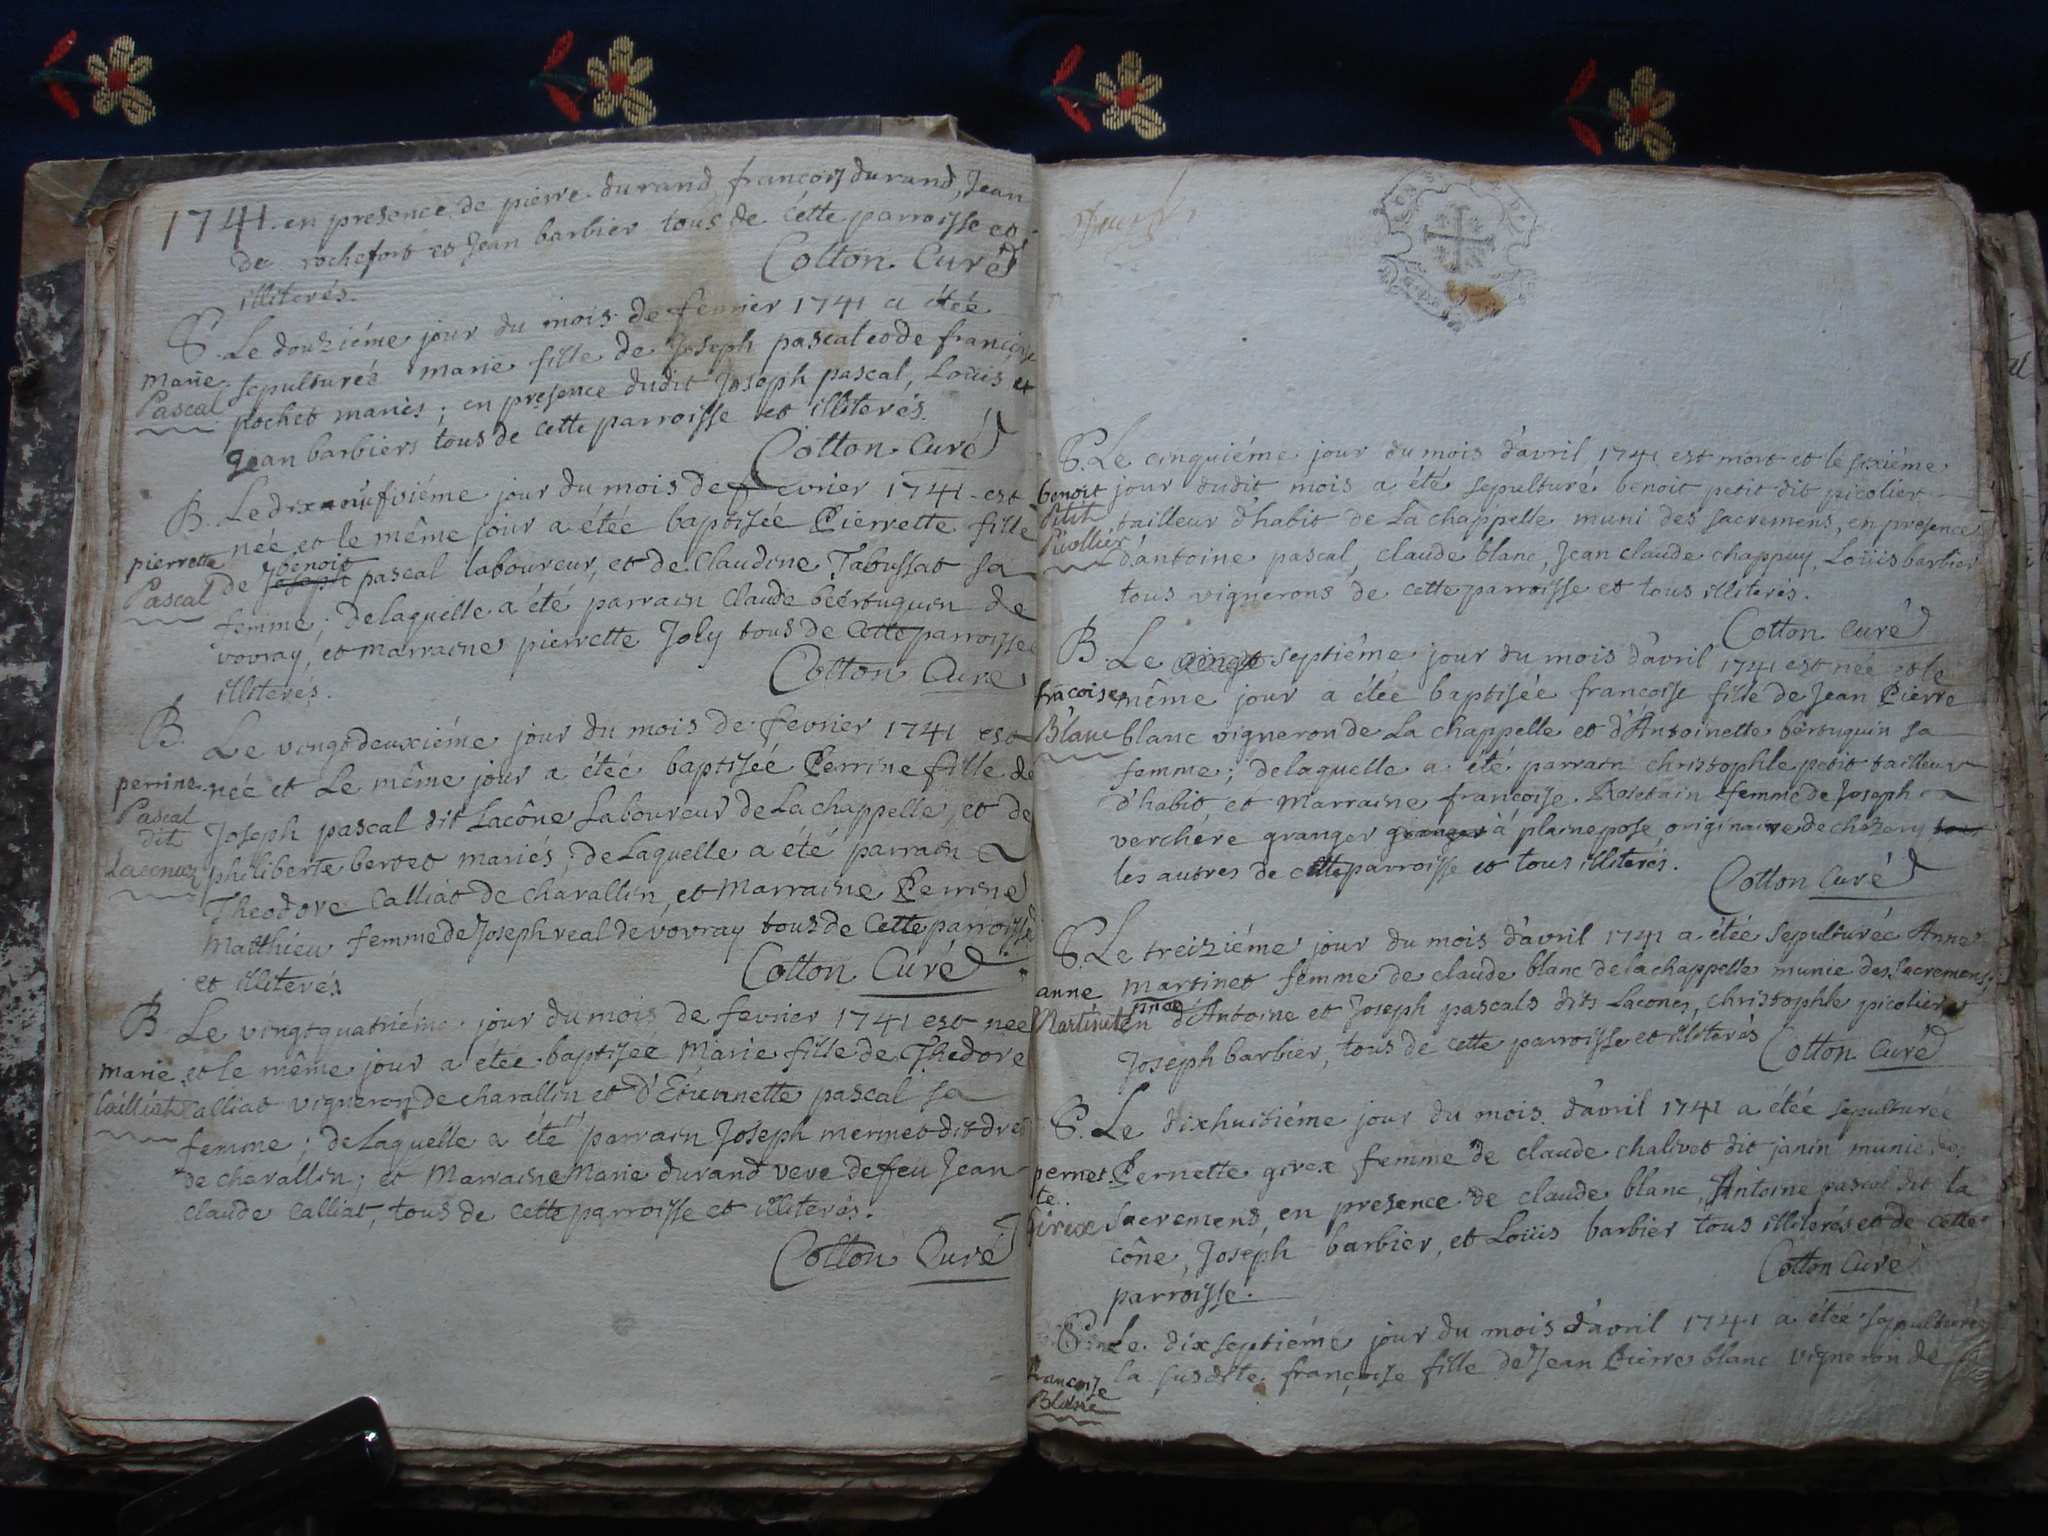 1741. en presence de pierre durand, francois durand, Jean
de rochefort et Jean barbier tous de cette parroisse et
illiterés. Cotton Curé
S. Le douziéme jour du mois de fevrier 1741 a étée
marie Pascal
sepulturée marie fille de Joseph pascal et de francoise
pochet mariés; en presence dudit Joseph pascal, Loüis et
Jean barbiers tous de cette parroisse et illiterés.
Cotton Curé
B. Le dixneufviéme jour du mois de fevrier 1741 est
pierrette Pascal
née et le même jour a étée baptisée Pierrette fille
de Joseph benoit pascal laboureur, et de Claudine Tabussat sa
femme; de laquelle a été parrain Claude béertuguin de
vovray, et Marraine pierrette Joly tous de cette parroisse
illiterés. Cotton Curé
B. Le vingt deuxiéme jour du mois de fevrier 1741 est
perrine Pascal dit
née et Le même jour a étée baptisée Perrine fille de
Joseph pascal dit Lacône Laboureur de La chappelle, et de
philiberte bertet mariés; de Laquelle a été parrain
Theodore Calliat de charallin, et Marraine Perrine
Matthieu femme de Joseph real de vovray tous de Cette parroisse
et illiterés Cotton Curé
B. Le vingtquatriéme jour du mois de fevrier 1741 est née
marie Calliat
et le même jour a étée baptisée Marie fille de Thedore
Calliat vigneron de charallin et d'Etiennette pascal sa
femme; de Laquelle a été parrain Joseph mermet dit
de charallin; et Marraine Marie durand veve de feu Jean
claude Calliat, tous de cette parroisse et illiterés.
Cotton Curé
S. Le cinquiéme jour du mois d'avril 1741 est mort et le sixiéme
benoit Petit Picollier
jour dudit mois a été sepulturé benoit petit dit picolier
tailleur d'habit de La chappelle muni des sacremens, en presence
d'antoine pascal, claude blanc, Jean claude chappuy, Loüis barbier
tous vignerons de cette parroisse et tous illiterés.
Cotton Curé
B. Le vingt septiéme jour du mois d'avril 1741 est née et le
fracoise Blanc
même jour a étée baptisée francoise fille de Jean Pierre
blanc vigneron de La chappelle et d'Antoinette bertuguin sa
femme; de laquelle a été parrain christophle petit tailleur
d'habit et Marraine francoise Rosetain femme de Joseph
verchére granger granger à plainepose originaire de chazery tous
les autres de cette parroisse et tous illiterés.
Cotton Curé
S. Le treiziéme jour du mois d'avril 1741 a étée sepulturée Anne
anne Martinet
Martinet femme de claude blanc de la chappelle munie des sacremens,
en pnce d'Antoine et Joseph pascals dits Lacones, christophle picolier et
Joseph barbier, tous de cette parroisse et illiterés
Cotton Curé
S. Le dixhuitiéme jour du mois d'avril 1741 a étée sepulturée
pernette Girex
Pernette girex femme de claude chalivet dit janin munie des
sacremens, en presence de claude blanc, Antoine pascal dit la
cône, Joseph barbier, et Loüis barbier tous illiterés et de cette
parroisse. Cotton Curé
S. Le dixseptiéme jour du mois d'avril 1741 a étée sepulturée
francoise Blanc
la susdite françoise fille de Jean Pierre blanc vigneron de